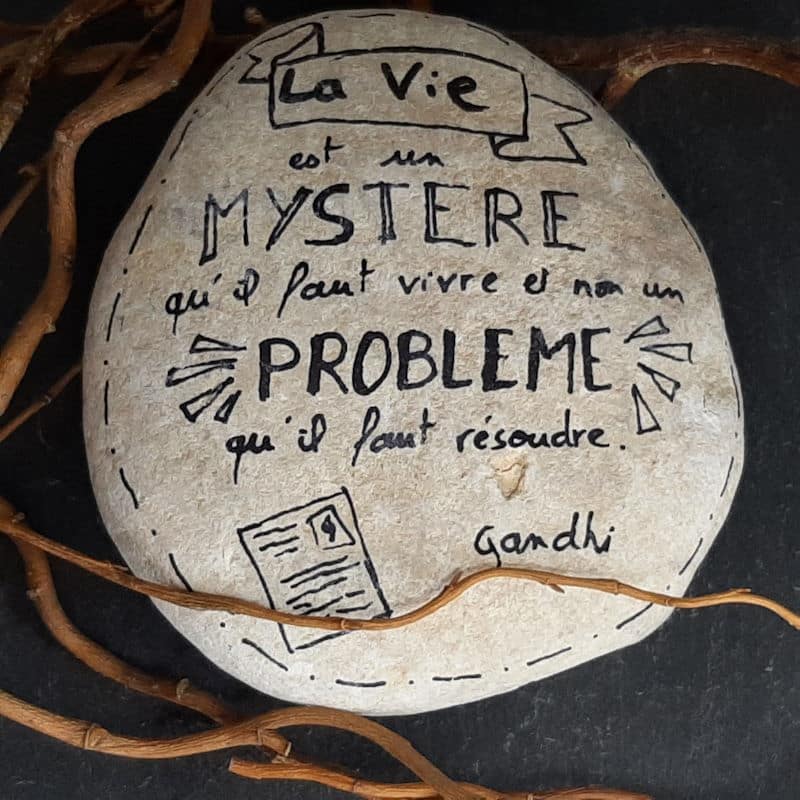 La Vie
est un
MYSTERE
qu'il faut vivre et non un
PROBLEME
qu'il faut résoudre.
Gandhi